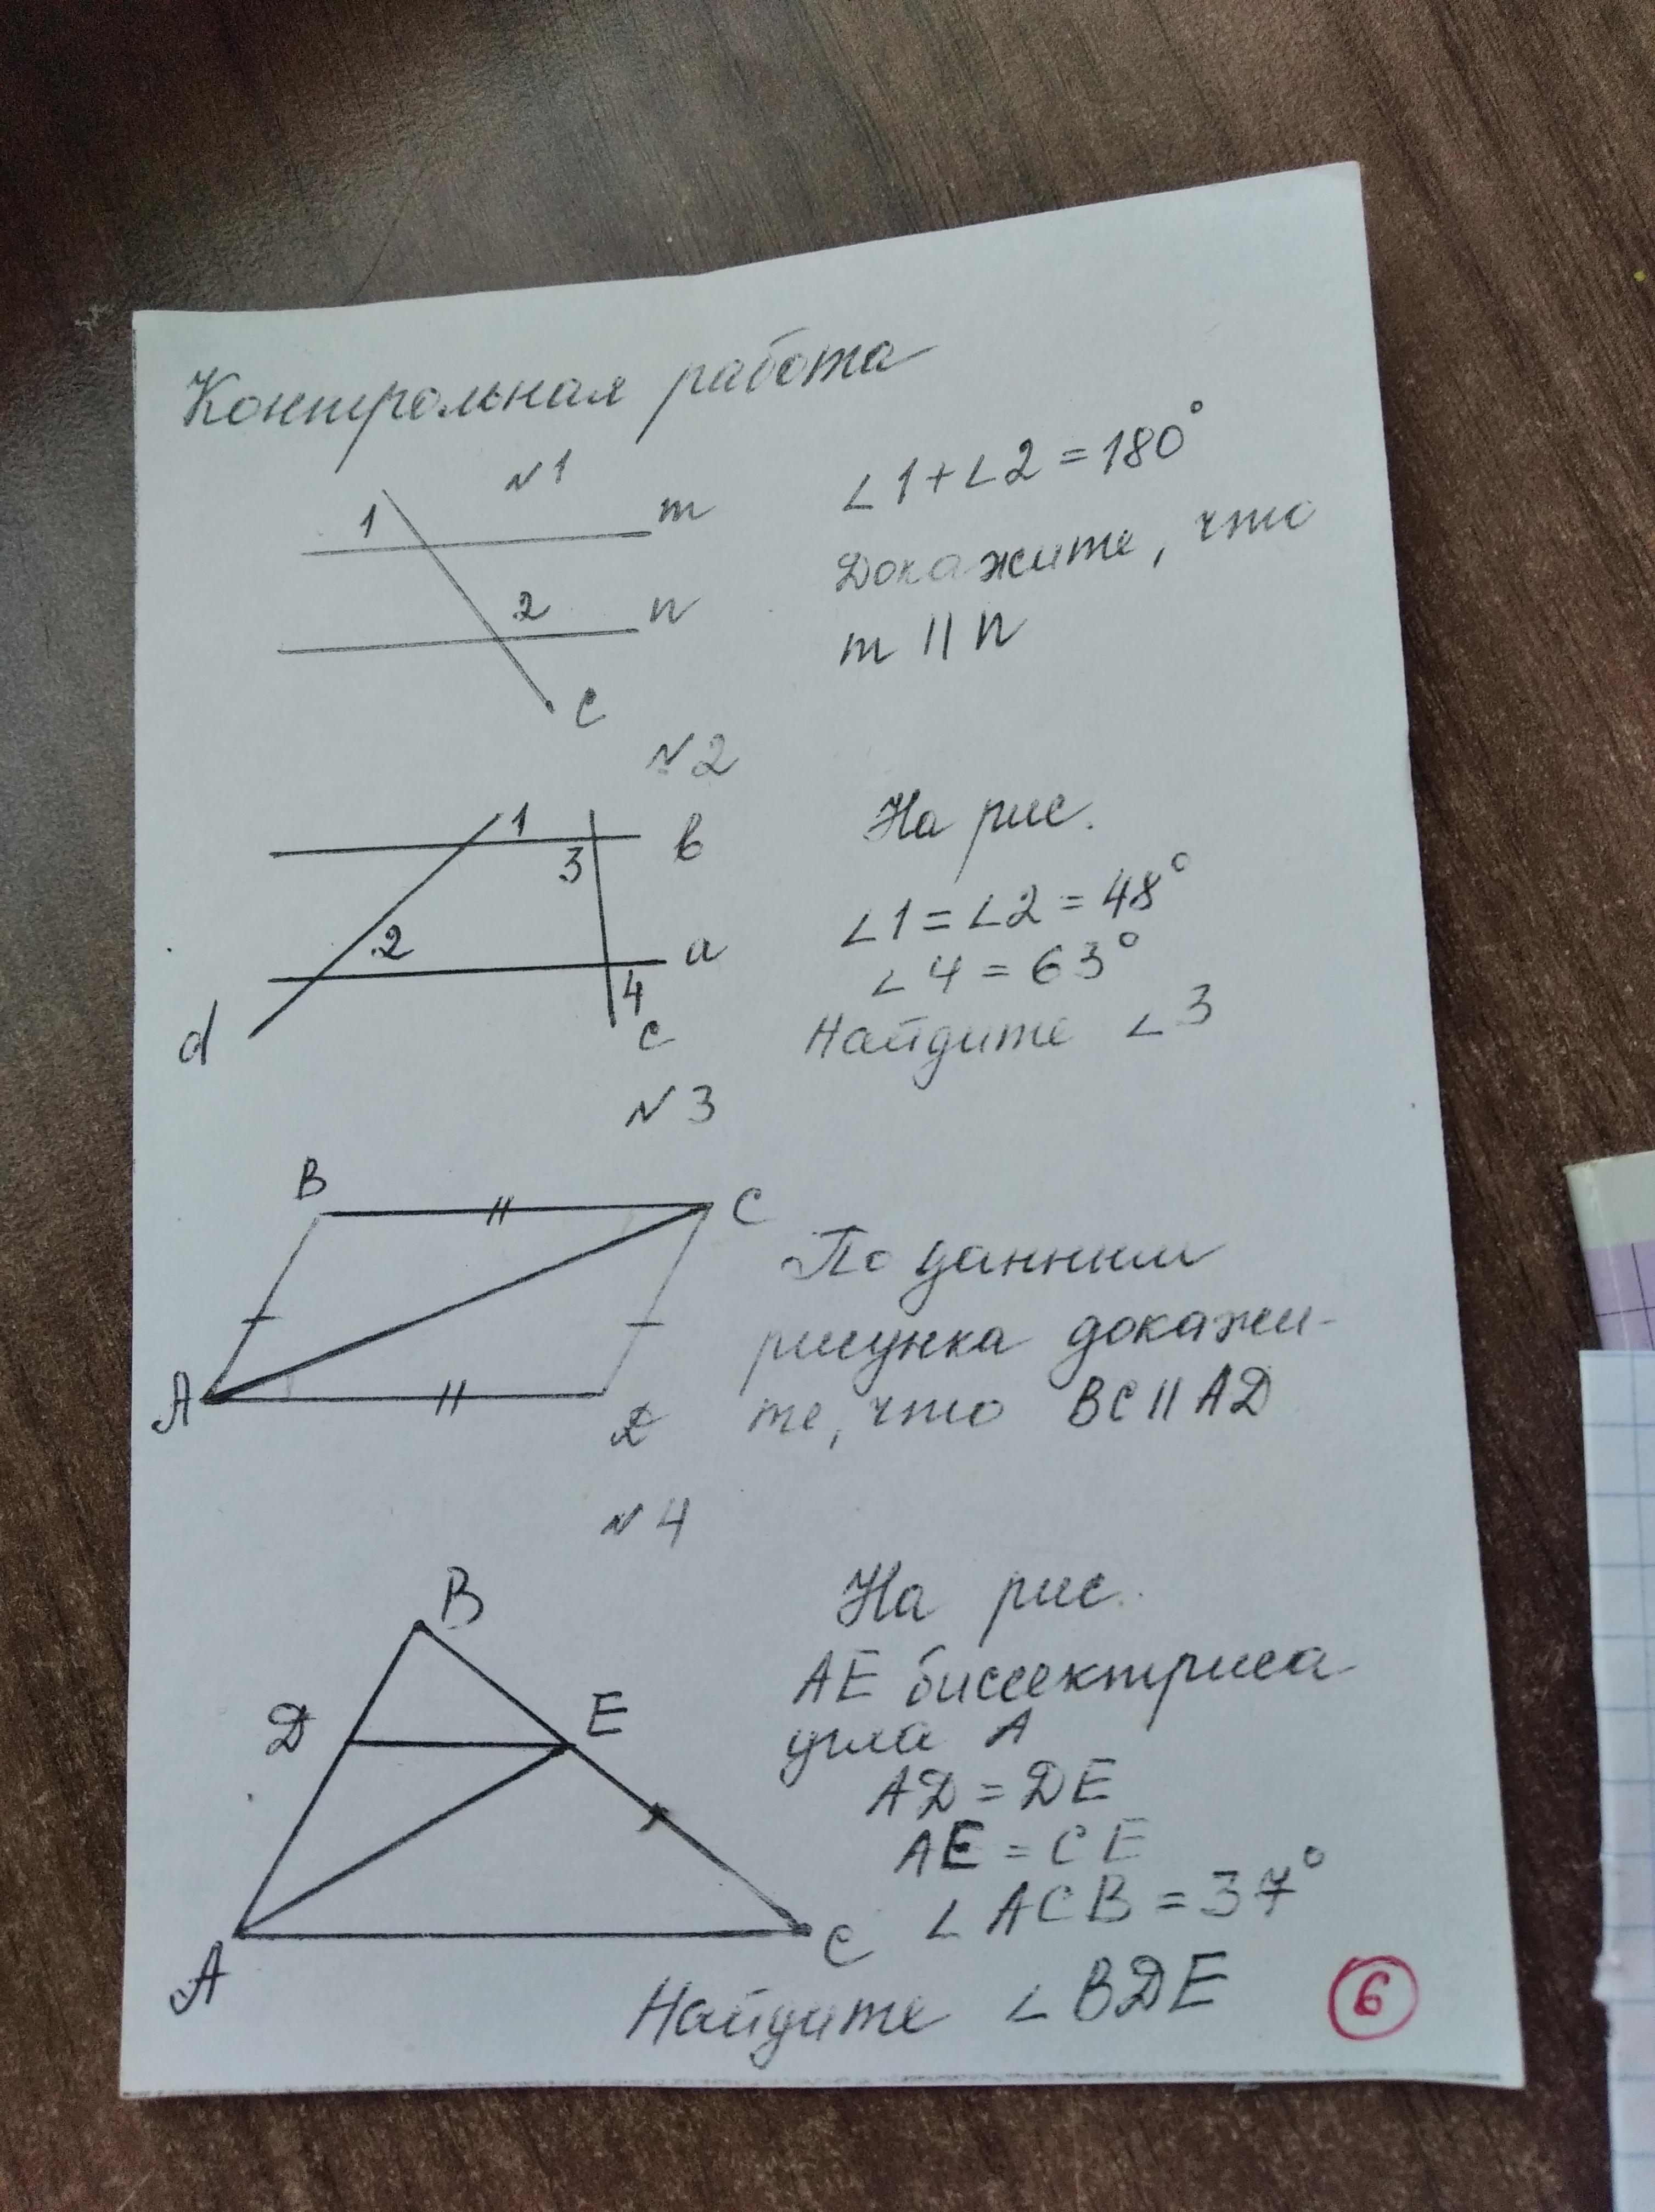 Контрольная работа
№1
1
m
2
n
c
∠1+∠2=180°
Докажите, что
m || n
№2
1
3
b
2
a
4
d
c
На рис.
∠1=∠2=48°
∠4=63°
Найдите ∠3
№3
B
C
A
D
По данным
рисунка докажи-
те, что BC||AD
№4
B
D
E
A
C
На рис.
AE биссектриса
угла A
AD=DE
AE=CE
∠ACB=37°
Найдите ∠BDE
6